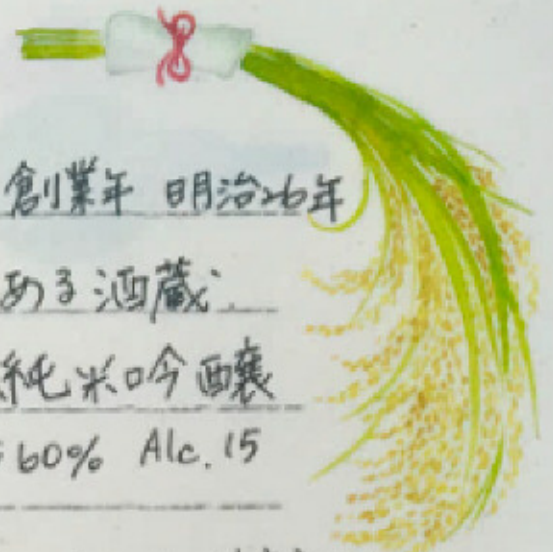 創業年 明治26年
ある酒蔵.
純米吟醸
60% Alc. 15